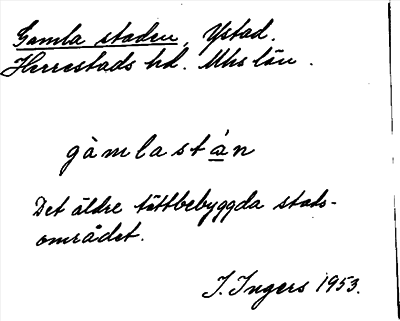 Gamla staden, Ystad.
Herrestads hd. Mhs län.
gàmlastá̲n
Det äldre tättbebyggda stads-
området.
I. Ingers 1953.